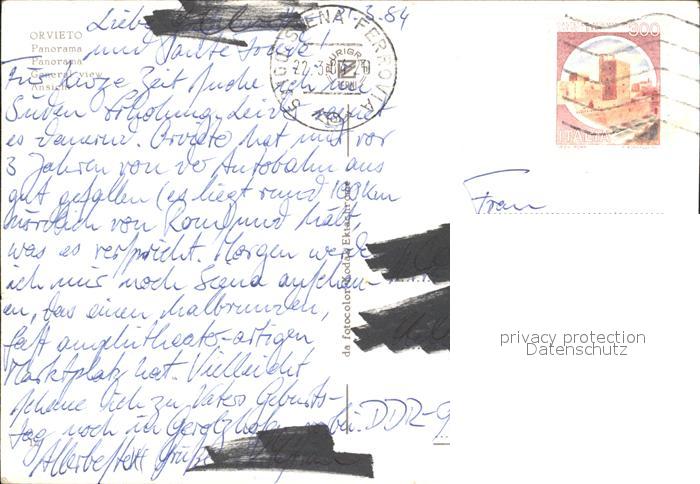 ORVIETO
Panorama
Panorama
General view
Ansicht
21.3.84
Liebe
und Tante
Für kurze Zeit suche ich im
Süden Erholung. Leider regnet
es dauernd. Orvieto hat mir vor
3 Jahren von der Autobahn aus
gut gefallen (es liegt rund 100 km
nördlich von Rom) und hält,
was es verspricht. Morgen werde
ich mir noch Siena anschau-
en, das einen halbrunden,
fast amphitheater-artigen
Marktplatz hat. Vielleicht
schaue ich zu Vaters Geburts-
tag noch in Gerolzhofen vorbei.
Allerbeste Grüße
da fotocolor Kodak Ektachrome
SIENA FERROVIA
22.3.84
300
ITALIA
Frau
DDR-9
privacy protection
Datenschutz